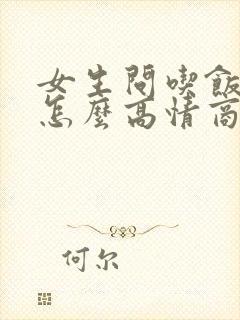 女生問喫飯
怎麼高情商
何尔